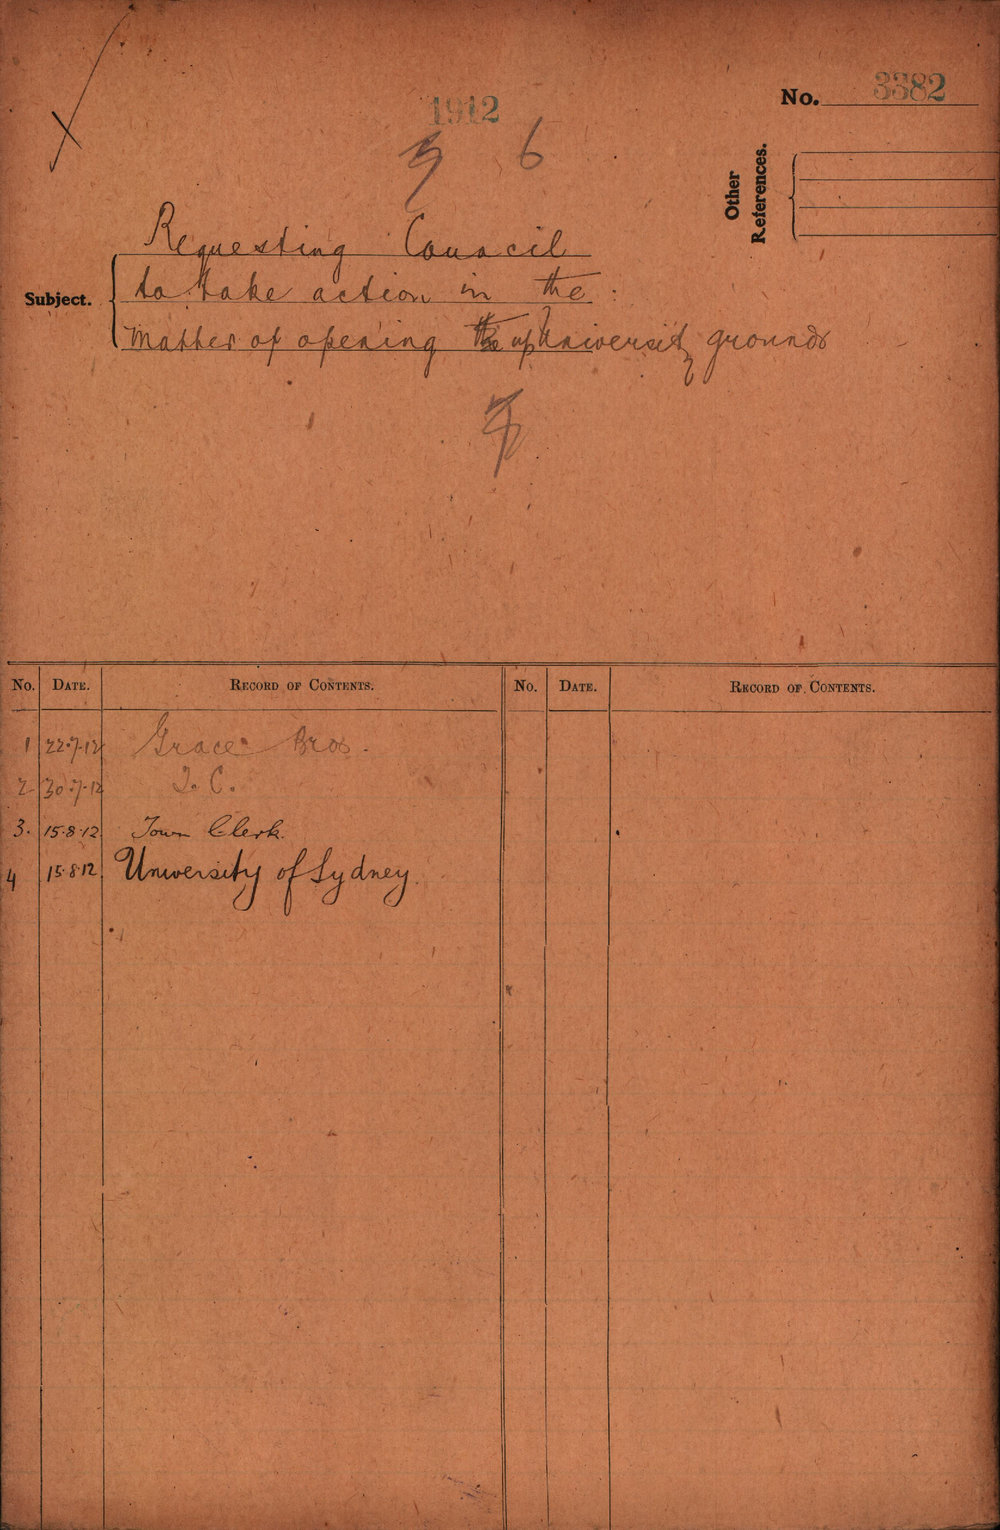 No. 3382
1912
6
Other References.
Requesting Council
Subject. to take action in the
matter of opening up University grounds
No. DATE. RECORD OF CONTENTS. No. DATE. RECORD OF CONTENTS.
1 22.7.12 Grace Bros.
2 30.7.12 T. C.
3. 15.8.12 Town Clerk.
4 15.8.12. University of Sydney.